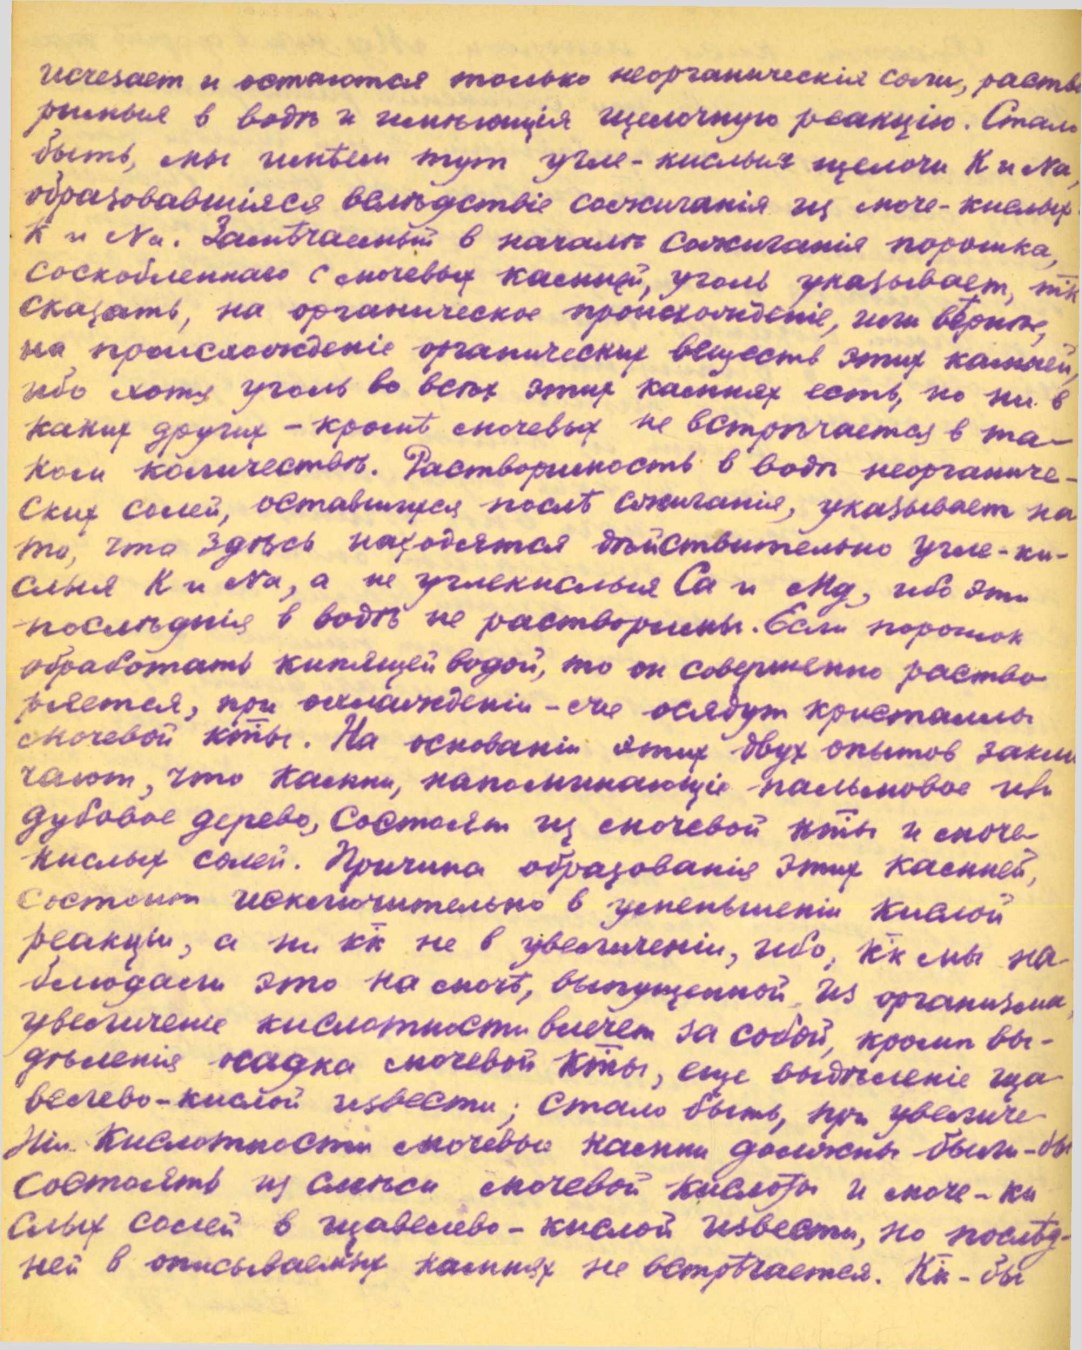 исчезает и остаются только неорганическія соли, раство
римыя в водѣ и имѣющія щелочную реакцію. Стало
быть, мы имѣем тут угле-кислыя щелочи K и Na,
образовавшіяся вслѣдствіе сожиганія из моче-кислых
K и Na. Замѣчаемый в началѣ сожиганія порошка,
соскобленнаго с мочевых камней, уголь указывает, тк
сказать, на органическое происхожденіе, или вѣрнѣе,
на происхожденіе органических веществ этих камней,
ибо хотя уголь во всѣх этих камнях есть, но ни в
каких других - кромѣ мочевых не встрѣчается в та-
ком количествѣ. Растворимость в водѣ неорганиче-
ских солей, оставшихся послѣ сжиганія, указывает на
то, что здѣсь находятся дѣйствительно угле-ки-
слыя K и Na, а не углекислыя Ca и Mg, ибо эти
послѣднія в водѣ не растворимы. Если порошок
обработать кипящей водой, то он совершенно раство
ряется, при охлажденіи-же осядут кристаллы
мочевой кты. На основаніи этих двух опытов заклю
чают, что камни, напоминающіе пальмовое или
дубовое дерево, состоят из мочевой кты и моче-
кислых солей. Причина образованія этих камней,
состоит исключительно в уменьшеніи кислой
реакціи, а ни кк не в увеличеніи, ибо, кк мы на-
блюдали это на мочѣ, выпущенной из организма,
увеличение кислотности влечет за собой, кромѣ вы-
дѣленія осадка мочевой кты, еще выдѣленіе ща
велево-кислой извести; стало быть, при увеличе
ніи кислотности мочевые камни должны были-бы
состоять из смѣси мочевой кислоты и моче-ки
слых солей в щавелево-кислой извести, но послѣд-
ней в описываемых камнях не встрѣчается. Кк-бы